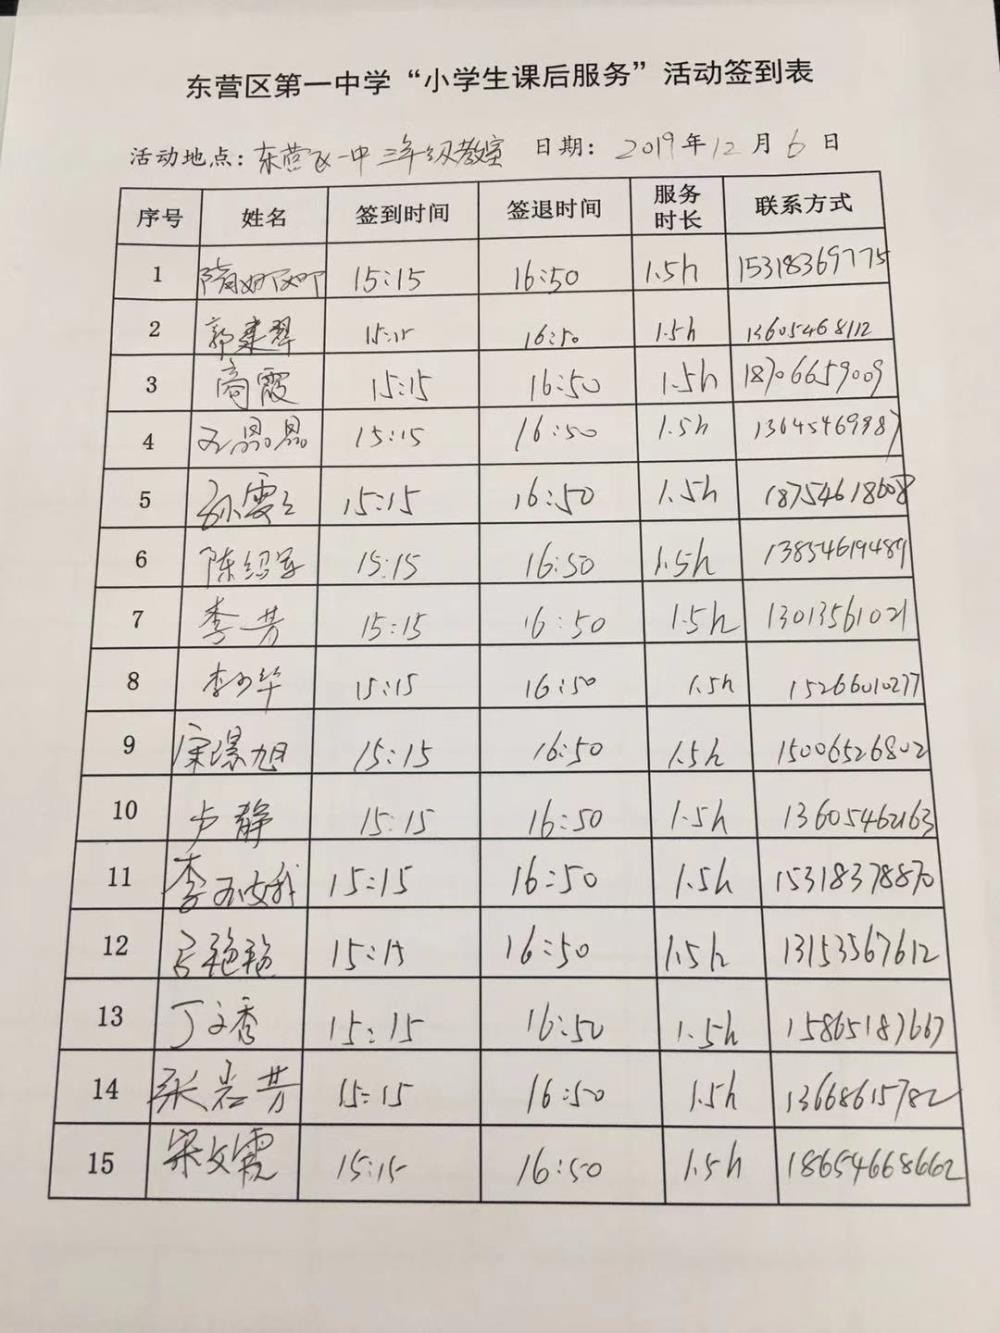 东营区第一中学“小学生课后服务”活动签到表
活动地点：东营区一中三年级教室 日期：2019年12月6日
序号 姓名 签到时间 签退时间 服务时长 联系方式
1 15:15 16:50 1.5h 15318369775
2 郭建翠 15:15 16:50 1.5h 13605468112
3 商霞 15:15 16:50 1.5h 18706659009
4 王晶晶 15:15 16:50 1.5h 13645469987
5 孙雯雯 15:15 16:50 1.5h 18754618608
6 陈绍军 15:15 16:50 1.5h 13854619489
7 李芳 15:15 16:50 1.5h 13013561021
8 李少华 15:15 16:50 1.5h 15266010277
9 旭 15:15 16:50 1.5h 15006526802
10 卢静 15:15 16:50 1.5h 13605462163
11 李 15:15 16:50 1.5h 15318378870
12 艳艳 15:15 16:50 1.5h 13153567612
13 丁文秀 15:15 16:50 1.5h 15865187667
14 张岩芳 15:15 16:50 1.5h 13668615782
15 宋文霞 15:15 16:50 1.5h 18654668662